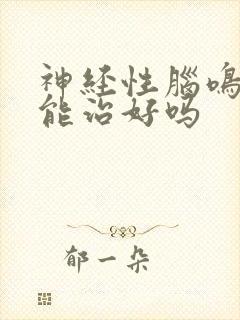 神经性腦鳴
能治好吗
郁一朵